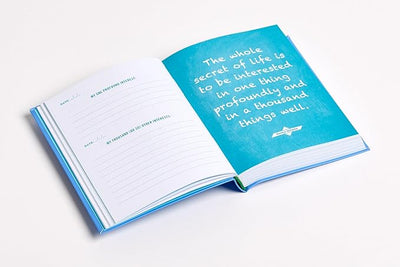 DATE
MY ONE PROFOUND INTEREST:
DATE
MY THOUSAND (OR SO) OTHER INTERESTS:
The whole
secret of life is
to be interested
in one thing
profoundly and
in a thousand
things well.